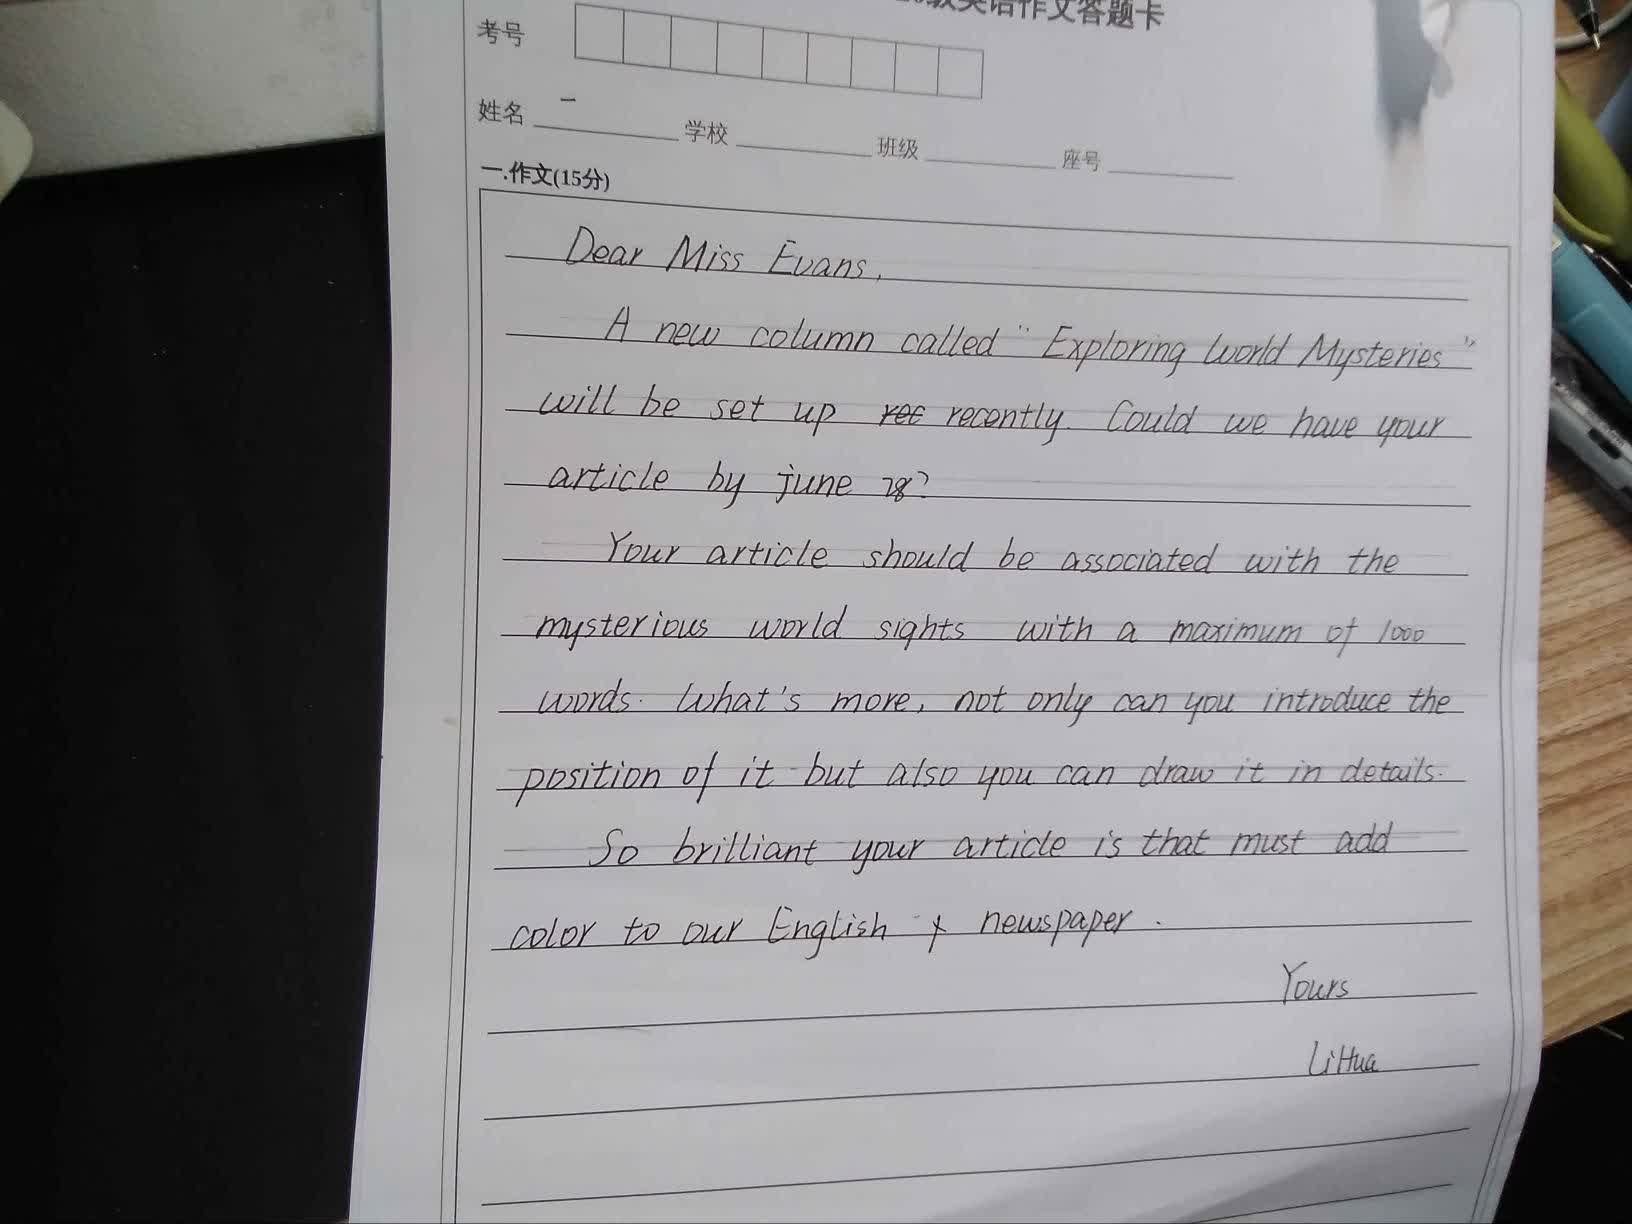 级英语作文答题卡
考号
姓名 学校 班级 座号
一.作文(15分)
Dear Miss Evans,
A new column called "Exploring World Mysteries"
will be set up rec recently. Could we have your
article by june 28?
Your article should be associated with the
mysterious world sights with a maximum of 1000
words. What's more, not only can you introduce the
position of it but also you can draw it in details.
So brilliant your article is that must add
color to our English newspaper.
Yours
LiHua